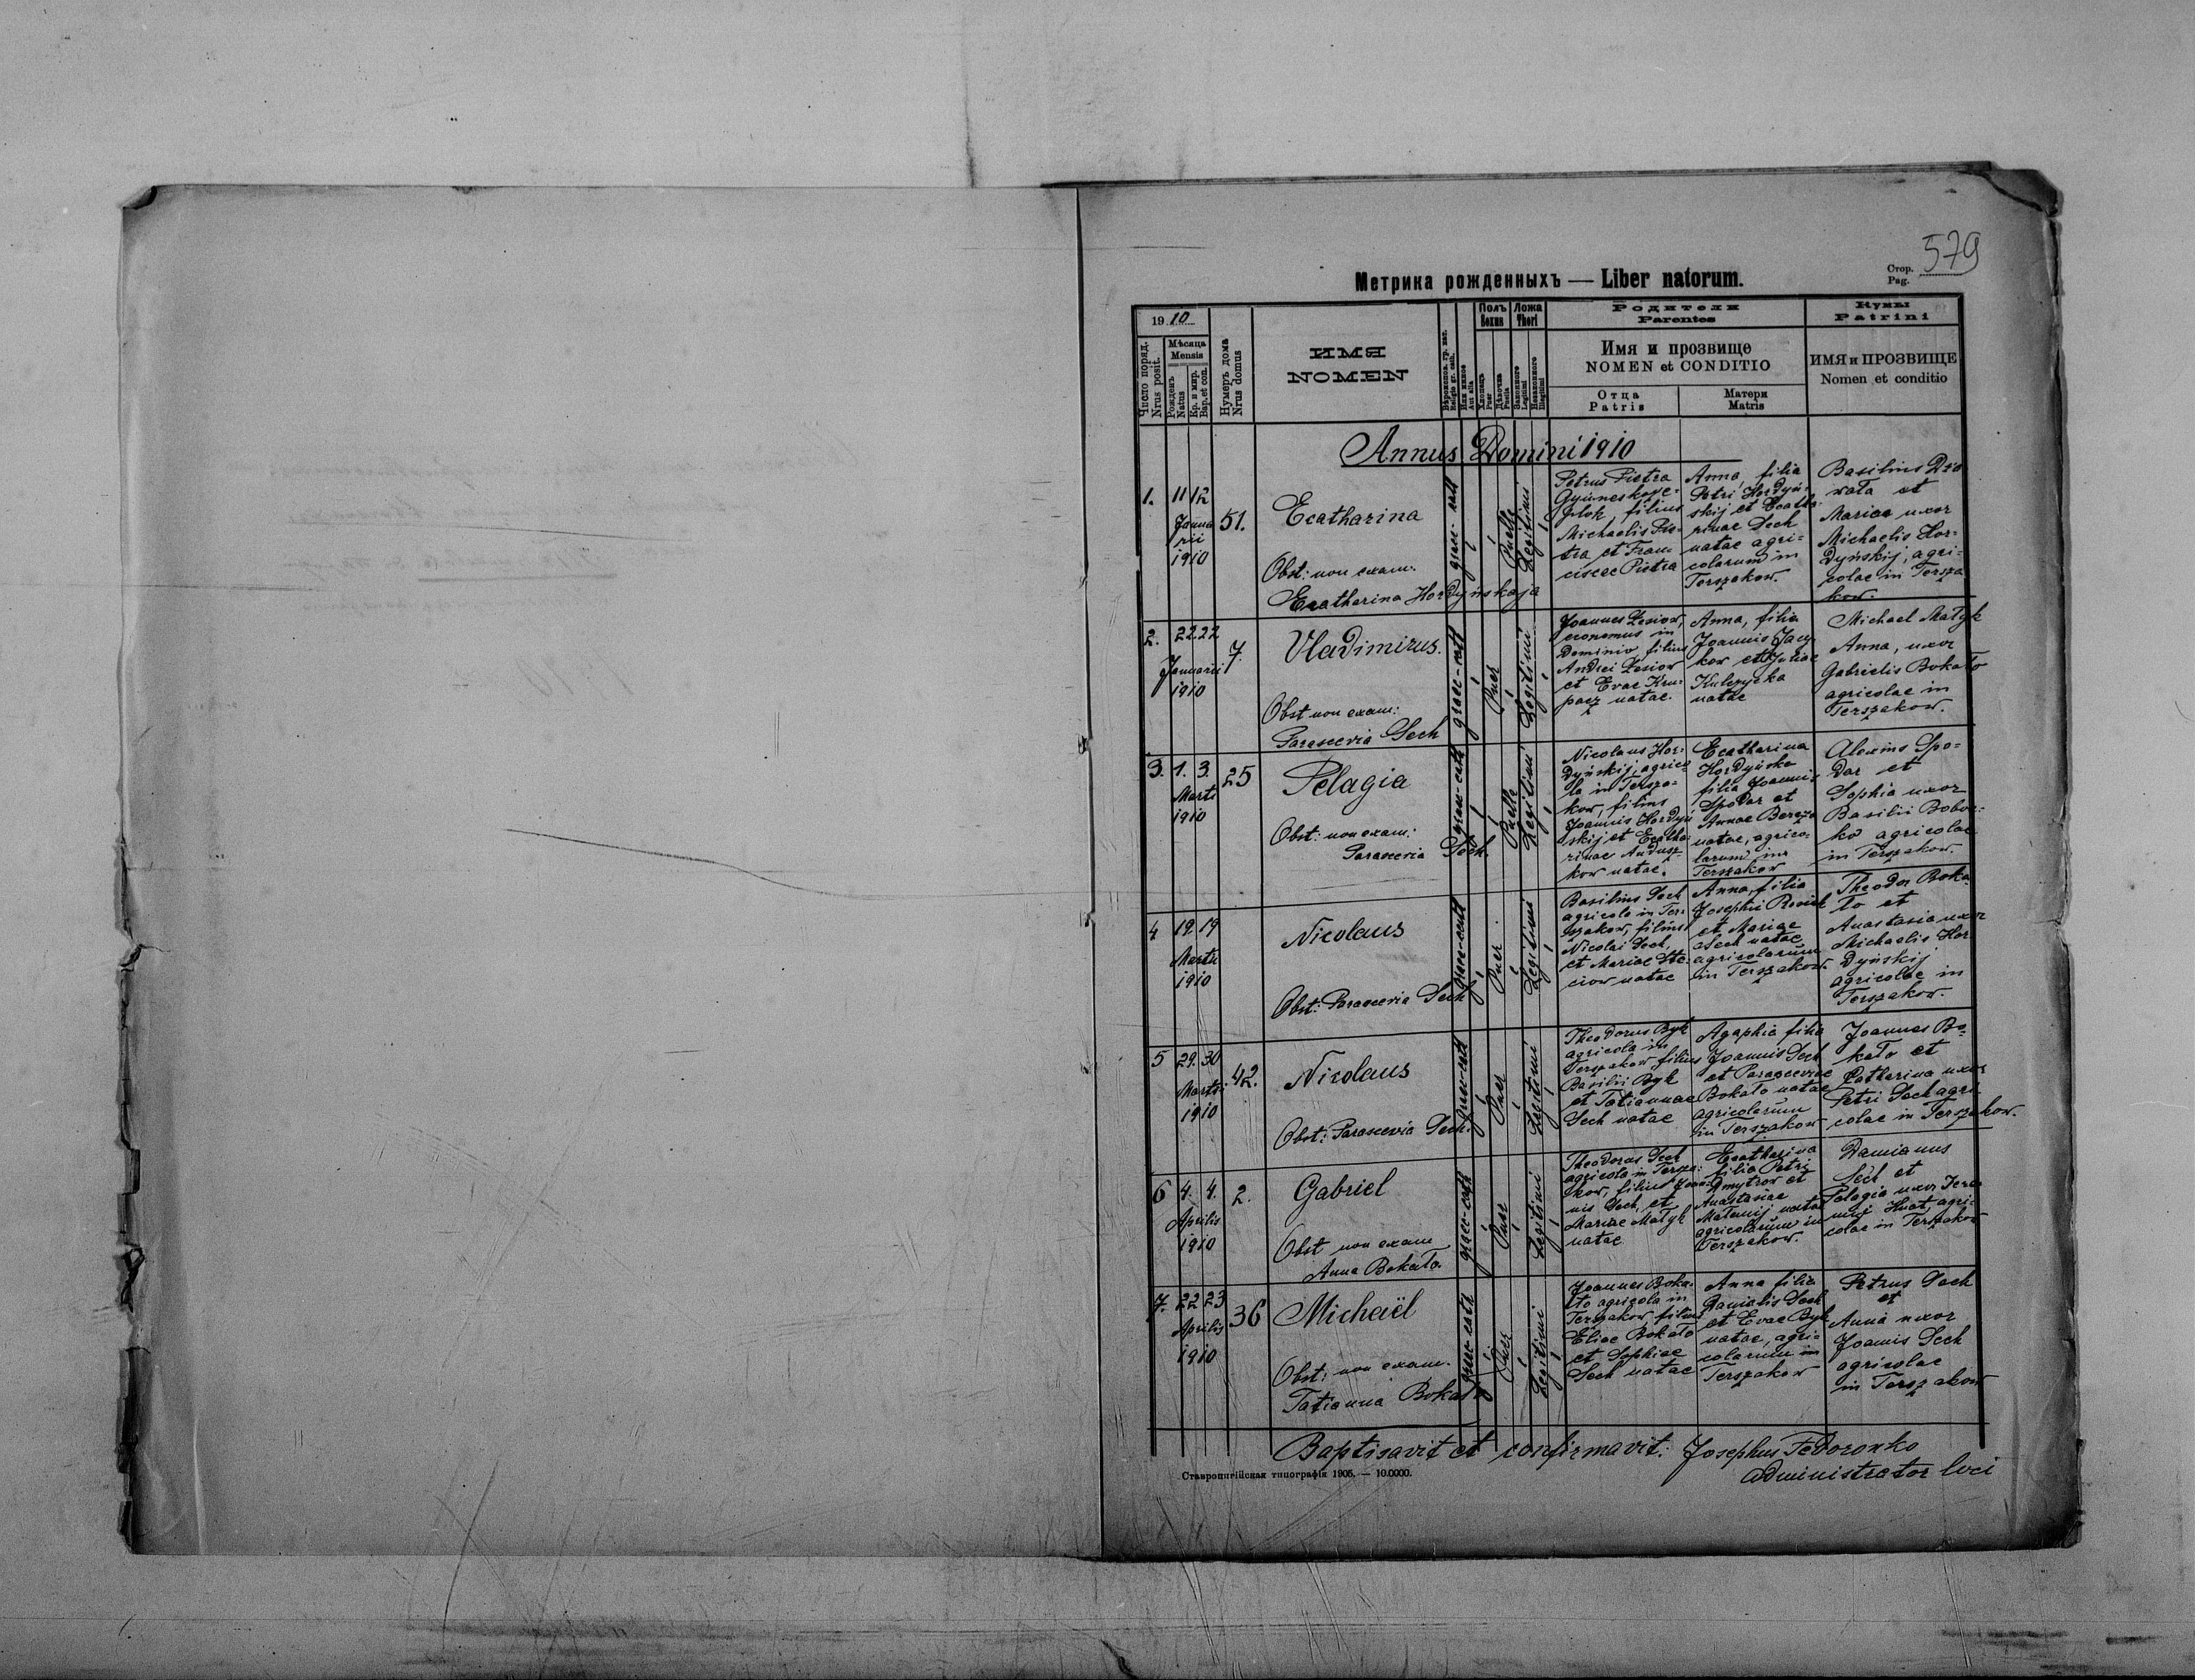 Стор.
Pag. 579
Метрика рожденныхъ — Liber natorum.
1910
Число поряд.
Nrus posit.
Мѣсяца
Mensis
Рожденъ
Natus
Кр. и мир.
Bap. et con.
Нумеръ дома
Nrus domus
ИМЯ
NOMEN
Полъ
Sexus
Хлопецъ
Puer
Дѣвочка
Puella
Ложа
Thori
Законного
Legitimi
Незаконного
Illegitimi
Родители
Parentes
Имя и прозвище
NOMEN et CONDITIO
Отца
Patris
Матери
Matris
Кумы
Patrini
ИМЯ и ПРОЗВИЩЕ
Nomen et conditio
Annus Domini 1910
1.
11 12
Janua
rii
1910
51.
Ecatharina
Obst: non exam:
Ecatharina Hordyńskaja
graec-cath
Puella
Legitimi
Petrus Pietra
filius
Michaelis Pie-
tra et Fran
ciscae Pietra
Anna, filia
Petri Hordyń-
skij et Ecatha
rinae Sech
natae agri-
colarum in
Terszakow.
Basilius
et
Maria uxor
Michaelis Hor-
dyńskij, agri-
colae in Tersza
kow.
2.
22 22
Januarii
1910
7.
Vladimirus.
Obst non exam:
Parascevia Sech
graec-cath
Puer
Legitimi
Joannes Lesiow,
economus in
Dominio, filius
Andrei Lesiow
et Evae
natae.
Anna, filia
Joannis
kow et Juliae
natae
Michael Matyk
Anna, uxor
Gabrielis Bokało
agricolae in
Terszakow.
3.
1. 3.
Marti
1910
25
Pelagia
Obst: non exam:
Parascevia Sech.
graec-cath
Puella
Legitimi
Nicolaus Hor-
dyńskij agrico
la in Tersza-
kow, filius
Joannis Hordyń
skij et Ecatha-
rinae Andrusz-
kow natae.
Ecatharina
Hordyńska
filia Joannis
Spodar et
Annae Bereza
natae, agrico-
larum in
Terszakow
Alexius Spo-
dar et
Sophia uxor
Basilii
agricolae
in Terszakow.
4
19. 19
Martii
1910
Nicolaus
Obst: Parascevia Sech
graec-cath
Puer
Legitimi
Basilius Sech
agricola in Ter-
szakow, filius
Nicolai Sech,
et Mariae Ste-
ciow natae
Anna, filia
Josephi
et Mariae
Sech natae
agricolarum
in Terszakow.
Theodor Boka
ło et
Anastasia uxor
Michaelis Hor
dyńskij
agricolae in
Terszakow.
5
29. 30
Martii
1910
42.
Nicolaus
Obst: Parascevia Sech.
graec-cath
Puer
Legitimi
Theodorus Byk
agricola in
Terszakow, filius
Basilii Byk
et Tatiannae
Sech natae
Agaphia filia
Joannis Sech
et Parasceviae
Bokało natae
agricolarum
in Terszakow
Joannes Bo-
kało et
Catharina uxor
Petri Sech agri
colae in Terszakow.
6
4. 4.
Aprilis
1910
2.
Gabriel
Obst non exam
Anna Bokało
graec-cath
Puer
Legitimi
Theodorus Sech
agricola in Tersza-
kow, filius Joan-
nis Sech, et
Mariae Matyk
natae
Ecatharina
filia Petri
Dmytrow et
Anastasiae
natae
agricolarum in
Terszakow.
Damianus
Sech et
Pelagia uxor Jere
miej Hnat, agri-
colae in Terszakow
7.
22 23
Aprilis
1910
36
Michaël
Obst: non exam.
Tatianna Bokało
graec-cath
Puer
Legitimi
Joannes Boka-
ło agricola in
Terszakow, filius
Eliae Bokało
et Sophiae
Sech natae
Anna filia
Danielis Sech
et Evae Byk
natae, agri-
colarum in
Terszakow
Petrus Sech
et
Anna uxor
Joannis Sech
agricolae
in Terszakow
Baptisavit et confirmavit: Josephus Fedoronko
administrator loci
Ставропигійская типографія 1905. — 10.0000.